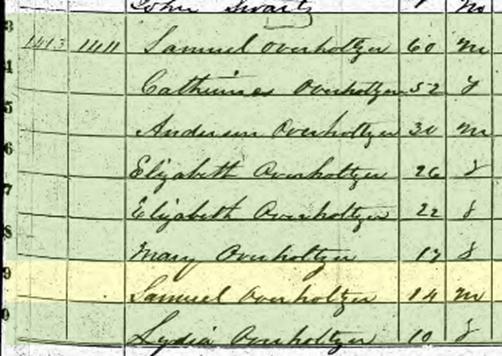 John Swartz
1413 1411 Samuel Overholtzer 60 m
Catherines Overholtzer 52 f
Anderson Overholtzer 30 m
Elizabeth Overholtzer 26 f
Elizabeth Overholtzer 22 f
Mary Overholtzer 17 f
Samuel Overholtzer 14 m
Lydia Overholtzer 10 f